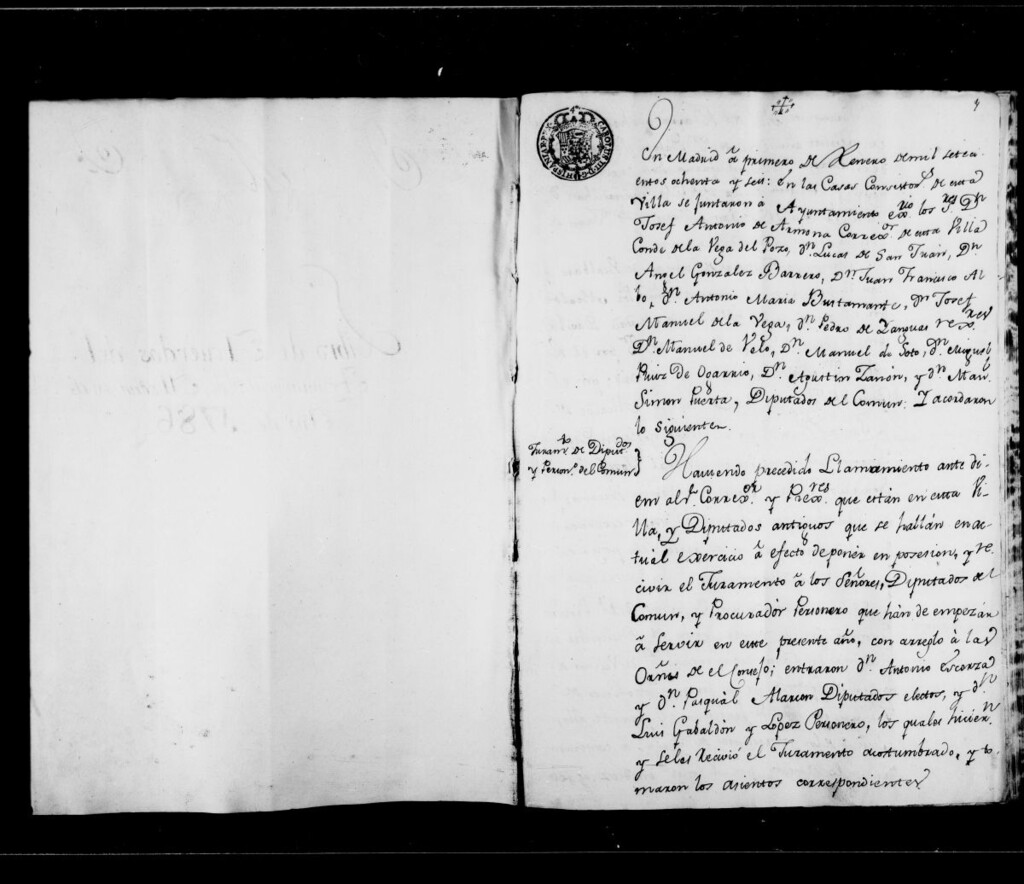 En Madrid â primero de Henero de mil setecientos ochenta y seis: en las Casas Consistor.s de esta
Villa se juntaron â Ayuntamiento los s.res D.n
Josef Antonio de Armona Correx.or de esta Villa
Conde de la Vega del Pozo, d.n Lucas de San Juan, D.n
Angel Gonzalez Barrero, D.n Juan Francisco Al
bo, d.n Antonio Maria Bustamante, d.n Josef
Manuel de la Vega, d.n Pedro de Yanguas rex.res
D.n Manuel de Velo, D.n Manuel de Soto, d.n Miguel
Ruiz de Ogarrio, D.n Agustin Zanón, y d.n Man.l
Simon Puerta, Diputados del Comun: Y acordaron
lo siguiente.
Juram.to de Diput.dos
y Person.o del Comun
Haviendo precedido Llamamiento ante di
em al s.r Correx.or y Rex.res que están en esta Vi
lla, y Diputados antiguos que se hallán en ac
tuál exercicio â efecto de ponér en posesion, y re
civir el Juramento â los Señores, Diputados del
Comun, y Procuradór Personero que hán de empezár
â servir en este presente año, con arreglo â las
Orñs de el Consejo; entraron d.n Antonio Escorza
y d.n Pasquál Alarcon Diputados electos, y d.n
Luis Gabaldón y Lopez Personero, los quales hicier.n
y se les recivió el Juramento acostumbrado, y to
maron los asientos correspondientes